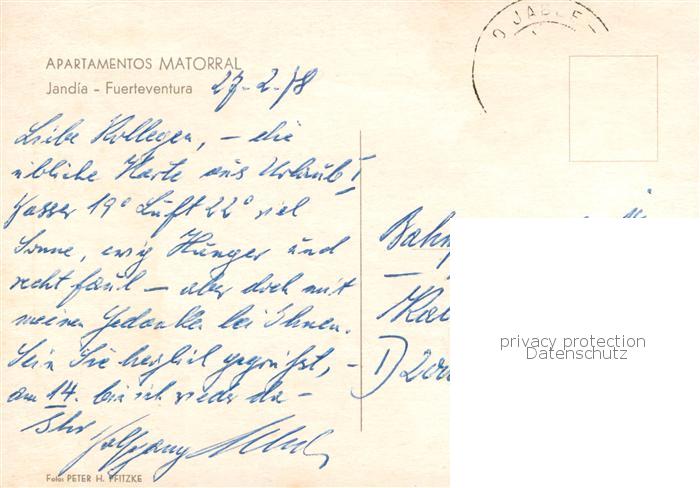 APARTAMENTOS MATORRAL
Jandía - Fuerteventura
27-2-78
O JABLE -
Liebe Kollegen, - die
übliche Karte aus Urlaub!
Wasser 19° Luft 22° viel
Sonne, ewig Hunger und
recht faul - aber doch mit
meinen Gedanken bei Ihnen.
Sein Sie herzlich gegrüßt, -
am 14. bin ich wieder da -
Ihr Wolfgang
Bahn
D
privacy protection
Datenschutz
Foto: PETER H. PFITZKE